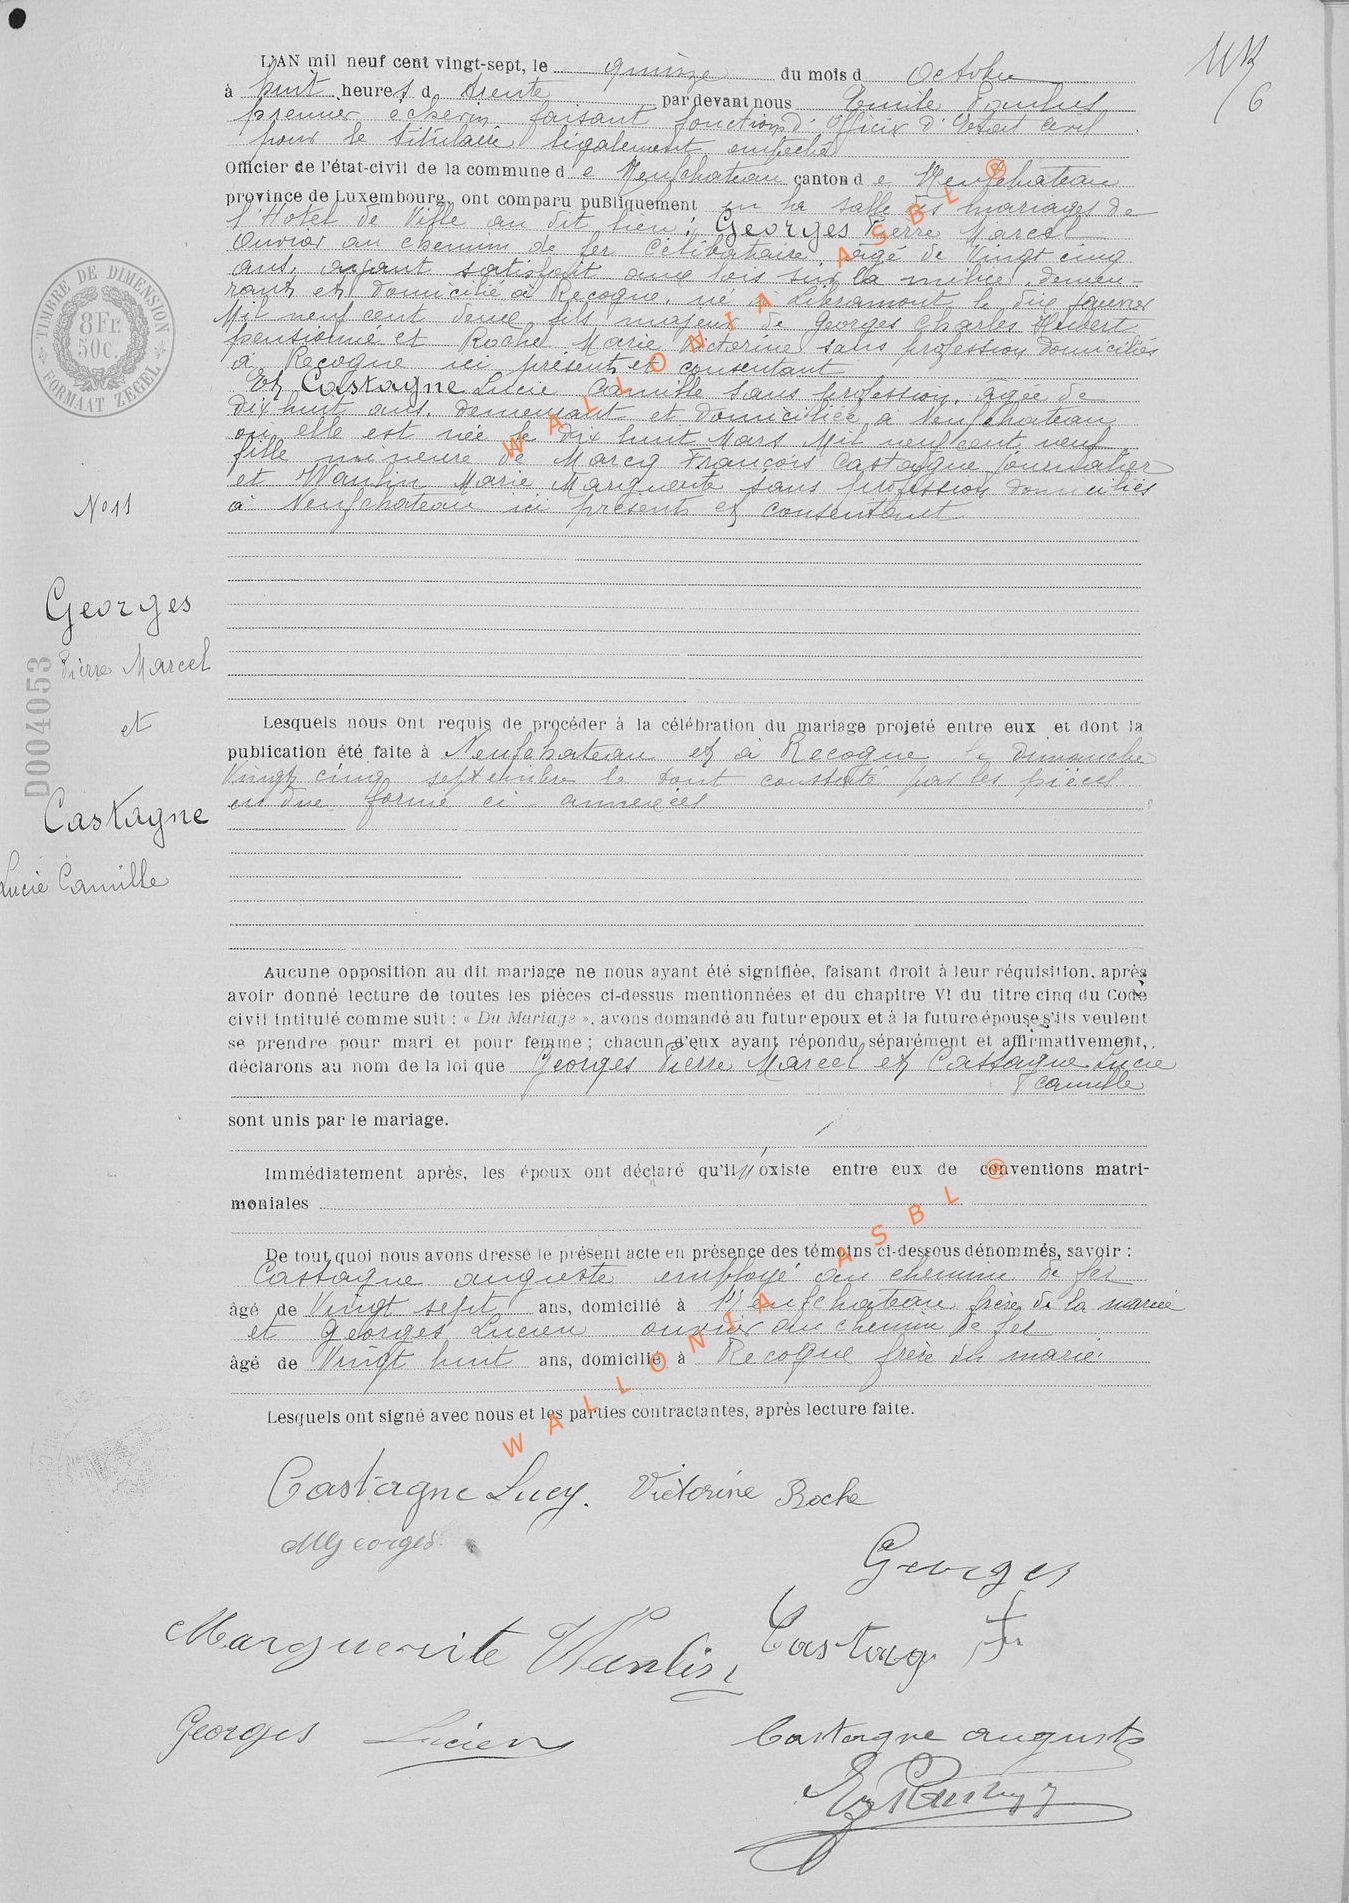 L'AN mil neuf cent vingt-sept, le quinze du mois d Octobre
à huit heures d trente par devant nous Emile
premier échevin faisant fonctions d'officier d'Etat Civil
pour le titulaire légalement empêché
Officier de l'état-civil de la commune d e Neufchateau canton d e Neufchateau
province de Luxembourg, ont comparu puBliquement en la salle des mariages de
l'Hotel de Ville au dit lieu: Georges Pierre Marcel
ouvrier au chemin de fer célibataire, âgé de Vingt cinq
ans, ayant satisfait aux lois sur la milice, demeu-
rant et domicilié à Recogne, né à Libramont le dix janvier
Mil neuf cent deux fils majeur de Georges Charles Hubert
pensionné et Roche Marie Victorine sans profession domiciliés
à Recogne ici présents et consentant
Et Castagne Lucie Camille sans profession, âgée de
Dix huit ans, demeurant et domiciliée à Neufchateau
où elle est née le dix huit Mars Mil neuf cent neuf
fille mineure de Marcq François Castagne journalier
et Wanlin Marie Marguerite sans profession domiciliés
à Neufchateau ici présents et consentant
No 11
Georges
Pierre Marcel
et
Castagne
Lucie Camille
D004053
TIMBRE DE DIMENSION
8Fr.
50c.
FORMAAT ZEGEL
6
Lesquels nous ont requis de procéder à la célébration du mariage projeté entre eux et dont la
publication été faite à Neufchateau et à Recogne le dimanche
Vingt cinq septembre le tout constaté par les pièces
en due forme ci-annexées
Aucune opposition au dit mariage ne nous ayant été signifiée, faisant droit à leur réquisition, après
avoir donné lecture de toutes les pièces ci-dessus mentionnées et du chapitre VI du titre cinq du Code
civil intitulé comme suit : « Du Mariage », avons domandé au futur epoux et à la future épouse s'ils veulent
se prendre pour mari et pour femme ; chacun d'eux ayant répondu séparément et affirmativement,
déclarons au nom de la loi que Georges Pierre Marcel et Castagne Lucie
Camille
sont unis par le mariage.
Immédiatement après, les époux ont déclaré qu'il n'existe entre eux de conventions matri-
moniales
De tout quoi nous avons dressé le présent acte en présence des témoins ci-dessous dénommés, savoir :
Castagne auguste employé au chemin de fer
âgé de Vingt sept ans, domicilié à Neufchateau frère de la mariée
et Georges Lucien ouvrier au chemin de fer
âgé de Vingt huit ans, domicilié à Recogne frère du marié
Lesquels ont signé avec nous et les parties contractantes, après lecture faite.
Castagne Lucy. Victorine Roche
MGeorges
Georges
Marguerite Wanlin Castag Fr
Georges Lucien Castagne auguste
WALLONIA ASBL ®
WALLONIA ASBL ®